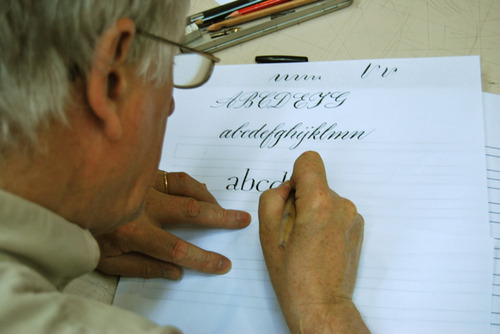 ABCDEFG
abcdefghijklmn
abcd